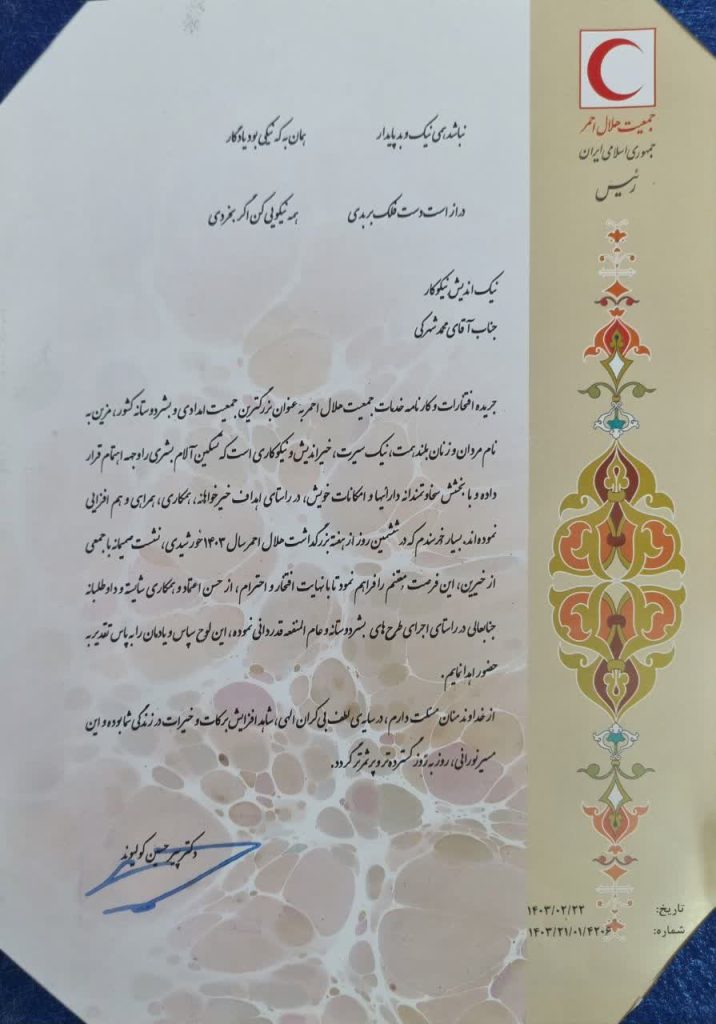 جمعیت هلال احمر
جمهوری اسلامی ایران
رئیس
نباشد همی نیک و بد پایدار همان به که نیکی بود یادگار
دراز است دست فلک بر بدی همه نیکویی کن اگر بخردی
نیک اندیش نیکوکار
جناب آقای محمد شهرکی
جریده افتخارات و کارنامه خدمات جمعیت هلال احمر به عنوان بزرگترین جمعیت امدادی و بشردوستانه کشور، مزین به
نام مردان و زنان بلند همت، نیک سیرت، خیراندیش و نیکوکاری است که تسکین آلام بشری را وجهه اهتمام قرار
داده و با بخشش سخاوتمندانه دارائیها و امکانات خویش، در راستای اهداف خیرخواهانه، همکاری، همراهی و هم افزایی
نموده‌اند. بسیار خرسندم که در ششمین روز از هفته بزرگداشت هلال احمر سال ۱۴۰۳ خورشیدی، نشست صمیمانه با جمعی
از خیرین، این فرصت مغتنم را فراهم نمود تا با نهایت افتخار و احترام، از حسن اعتماد و همکاری شایسته و داوطلبانه
جنابعالی در راستای اجرای طرح های بشردوستانه و عام المنفعه قدردانی نموده، این لوح سپاس و یادمان را به پاس تقدیر به
حضور اهدا نمایم.
از خداوند منان مسئلت دارم، در سایه‌ی لطف بی کران الهی، شاهد افزایش برکات و خیرات در زندگی شما بوده و این
مسیر نورانی، روز به روز گسترده‌تر و پرثمرتر گردد.
دکتر پیرحسین کولیوند
تاریخ: ۱۴۰۳/۰۲/۲۳
شماره: ۱۴۰۳/۲۱/۰۱/۴۲۰۶